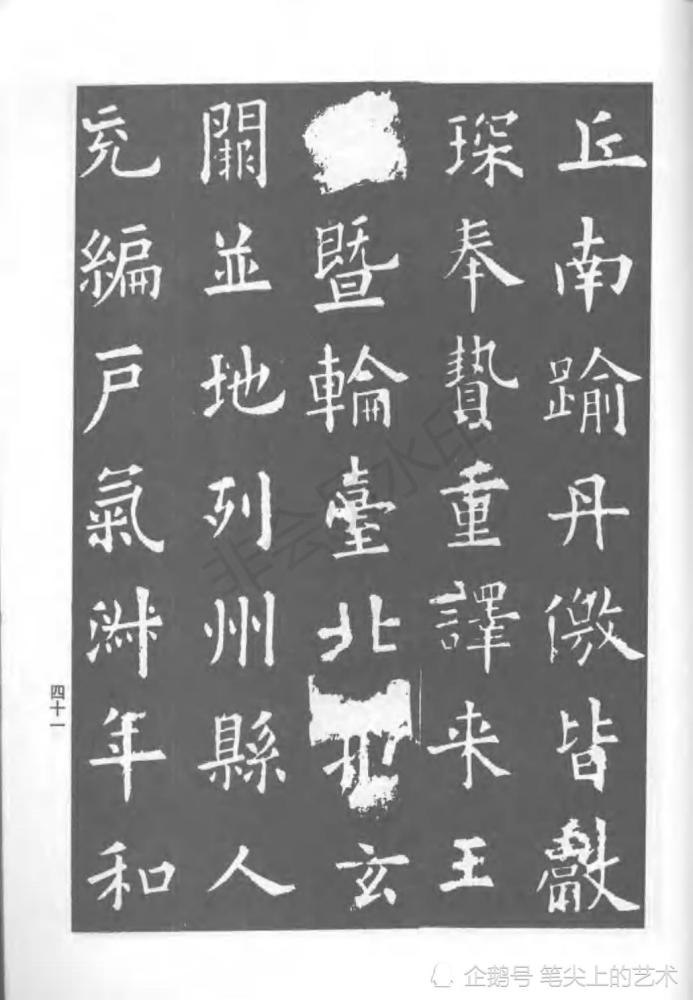 丘南踰丹儌皆獻
琛奉贄重譯来王
暨輪臺北玄
闕並地列州縣人
充編戶氣淑年和
四十一
非会员水印
企鹅号 笔尖上的艺术